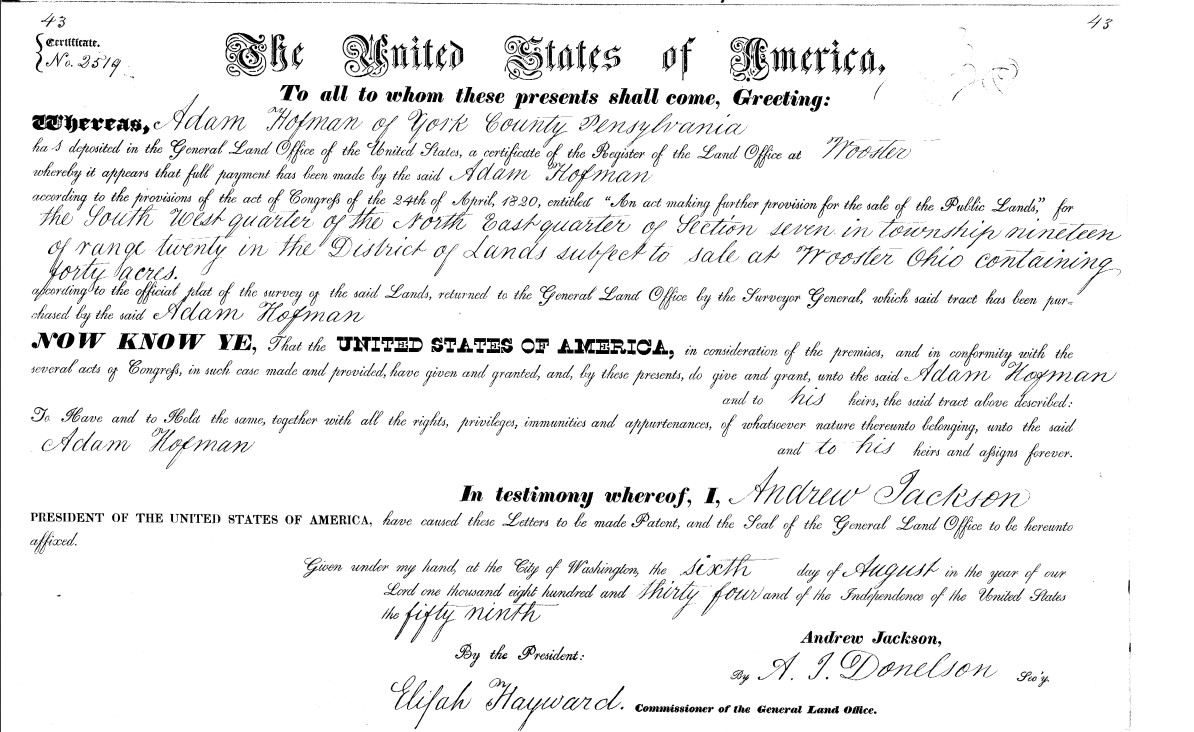 43
43
Certificate.
No. 2519
The United States of America,
To all to whom these presents shall come, Greeting:
Whereas, Adam Hofman of York County Pensylvania
has deposited in the General Land Office of the United States, a certificate of the Register of the Land Office at Wooster
whereby it appears that full payment has been made by the said Adam Hofman
according to the provisions of the act of Congress of the 24th of April, 1820, entitled "An act making further provision for the sale of the Public Lands", for
the South West quarter of the North East quarter of Section seven in township nineteen
of range twenty in the District of Lands subject to sale at Wooster Ohio containing
forty acres.
according to the official plat of the survey of the said Lands, returned to the General Land Office by the Surveyor General, which said tract has been pur-
chased by the said Adam Hofman
NOW KNOW YE, That the UNITED STATES OF AMERICA, in consideration of the premises, and in conformity with the
several acts of Congress, in such case made and provided, have given and granted, and, by these presents, do give and grant, unto the said Adam Hofman
and to his heirs, the said tract above described:
To Have and to Hold the same, together with all the rights, privileges, immunities and appurtenances, of whatsoever nature thereunto belonging, unto the said
Adam Hofman and to his heirs and assigns forever.
In testimony whereof, I, Andrew Jackson
PRESIDENT OF THE UNITED STATES OF AMERICA, have caused these Letters to be made Patent, and the Seal of the General Land Office to be hereunto
affixed.
Given under my hand, at the City of Washington, the sixth day of August in the year of our
Lord one thousand eight hundred and thirty four and of the Independence of the United States
the fifty ninth
Andrew Jackson,
By the President:
By A. J. Donelson Sec'y.
Elijah Hayward. Commissioner of the General Land Office.